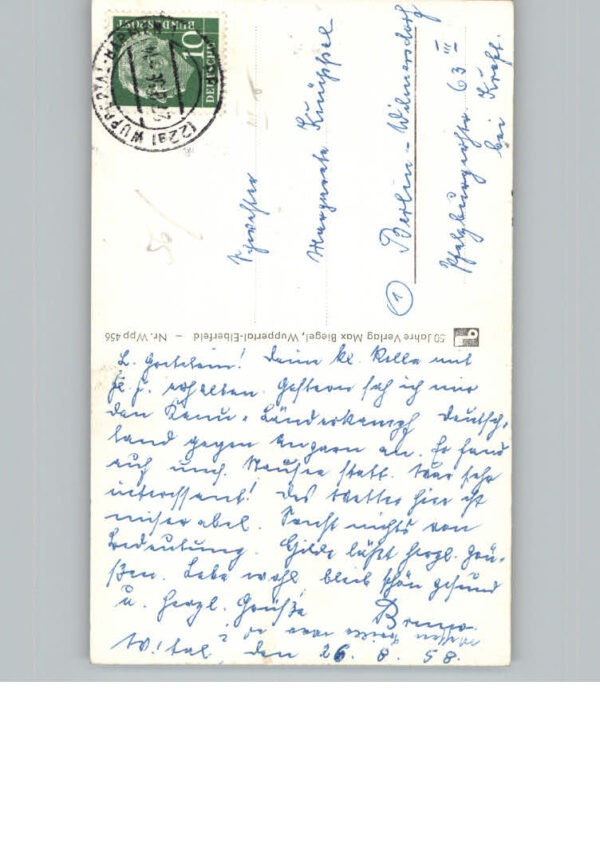 DEUTSCHE
BUNDESPOST
10
(22a) WUPPERTAL-BARMEN
Schwester
Margarete Knüppel
① Berlin-Wilmersdorf
Pfalzburgerstr 63 III
bei Kraft.
50 Jahre Verlag Max Biegel, Wuppertal-Elberfeld – Nr. Wpp 456
L. Gretelein! Deine kl. Rolle mit
erhalten. Gestern sah ich mir
den Kanu-Länderkampf Deutsch-
land gegen Ungarn an. Er fand
auf statt. War sehr
interessant! Das Wetter hier ist
miserabel. Sonst nichts von
Bedeutung. Hilde läßt herzl. grü-
ßen. Lebe wohl bleib schön gesund
u. herzl. Grüße Bruno
W.tal, den 26. 8. 58.